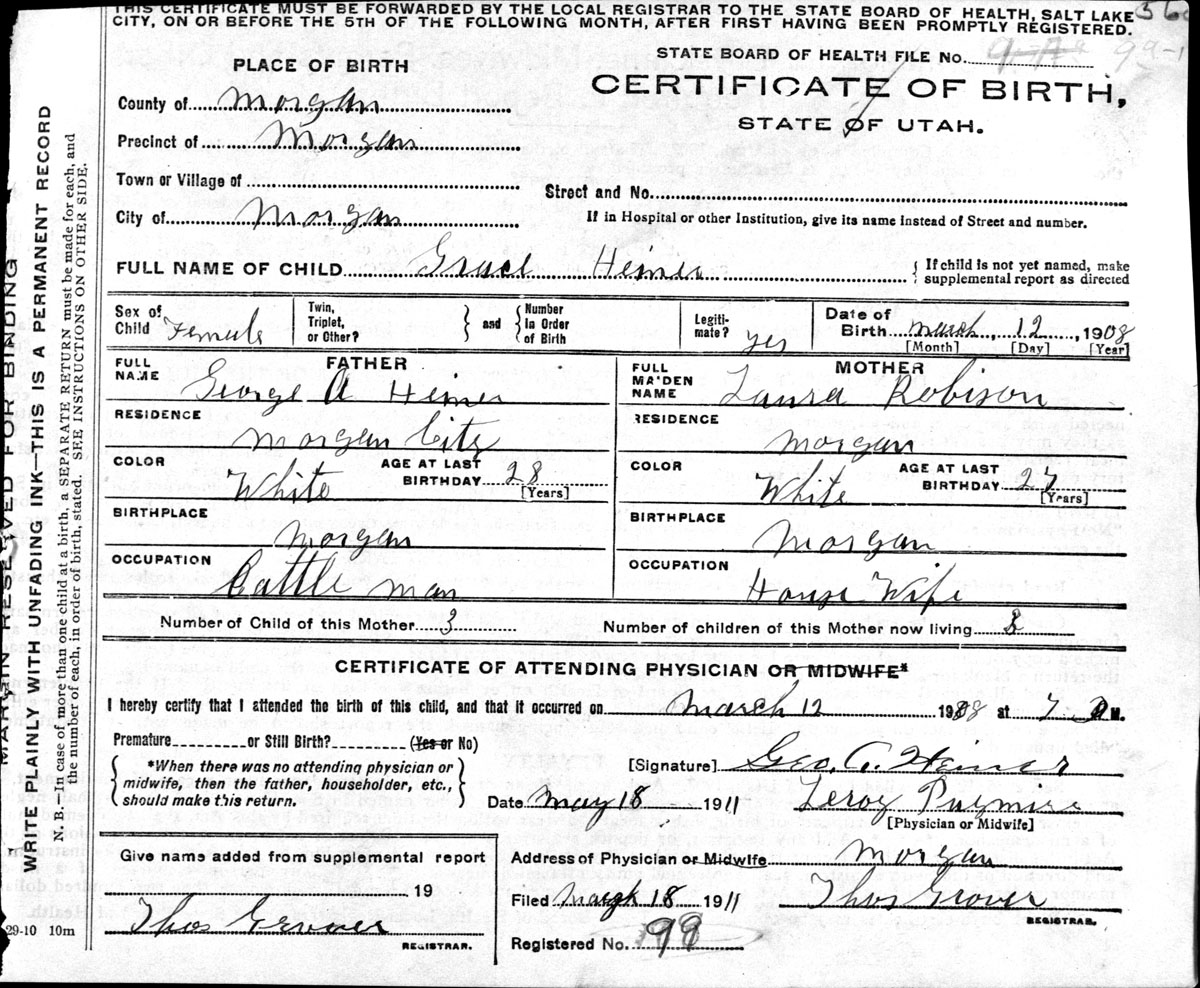 THIS CERTIFICATE MUST BE FORWARDED BY THE LOCAL REGISTRAR TO THE STATE BOARD OF HEALTH, SALT LAKE
CITY, ON OR BEFORE THE 5TH OF THE FOLLOWING MONTH, AFTER FIRST HAVING BEEN PROMPTLY REGISTERED.
STATE BOARD OF HEALTH FILE No. 99-1
PLACE OF BIRTH
CERTIFICATE OF BIRTH,
STATE OF UTAH.
County of Morgan
Precinct of Morgan
Town or Village of
Street and No.
City of Morgan
If in Hospital or other Institution, give its name instead of Street and number.
FULL NAME OF CHILD Grace Heiner { If child is not yet named, make supplemental report as directed
Sex of Child Female Twin, Triplet, or Other? } and { Number in Order of Birth Legiti-mate? yes Date of Birth March 12, 1908
[Month] [Day] [Year]
FATHER
MOTHER
FULL NAME George A Heiner
FULL MAIDEN NAME Laura Robison
RESIDENCE Morgan City
RESIDENCE Morgan
COLOR White AGE AT LAST BIRTHDAY 28 [Years]
COLOR White AGE AT LAST BIRTHDAY 27 [Years]
BIRTHPLACE Morgan
BIRTHPLACE Morgan
OCCUPATION Cattle man
OCCUPATION House Wife
Number of Child of this Mother 3
Number of children of this Mother now living 3
CERTIFICATE OF ATTENDING PHYSICIAN OR MIDWIFE*
I hereby certify that I attended the birth of this child, and that it occurred on March 12 1908 at 7 M.
Premature or Still Birth? (Yes or No)
*When there was no attending physician or
midwife, then the father, householder, etc.,
should make this return.
[Signature] Geo. A. Heiner
Date May 18 1911 Leroy Pugmire
[Physician or Midwife]
Give name added from supplemental report
19
Thos Grover
REGISTRAR.
Address of Physician or Midwife Morgan
Filed 18 1911 Thos Grover
REGISTRAR.
Registered No. 98
29-10 10m
MARGIN RESERVED FOR BINDING
WRITE PLAINLY WITH UNFADING INK—THIS IS A PERMANENT RECORD
N. B.—In case of more than one child at a birth, a SEPARATE RETURN must be made for each, and
the number of each, in order of birth, stated. SEE INSTRUCTIONS ON OTHER SIDE.